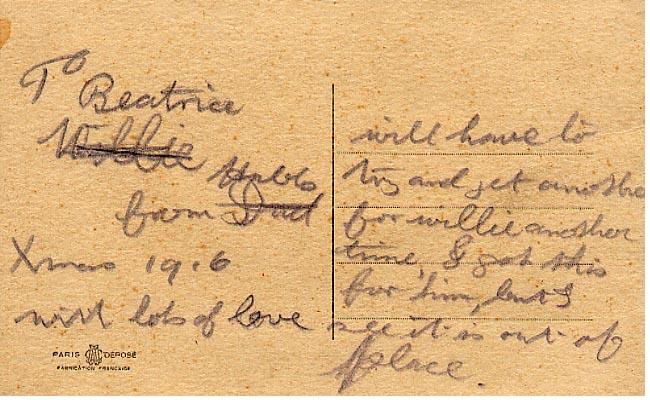 To
Beatrice
Willie
from Dad
Xmas 1916
with lots of love
PARIS DÉPOSÉ
FABRICATION FRANÇAISE
will have to
try and get another
for willie another
time, I got this
for him, but I
see it is out of
place.